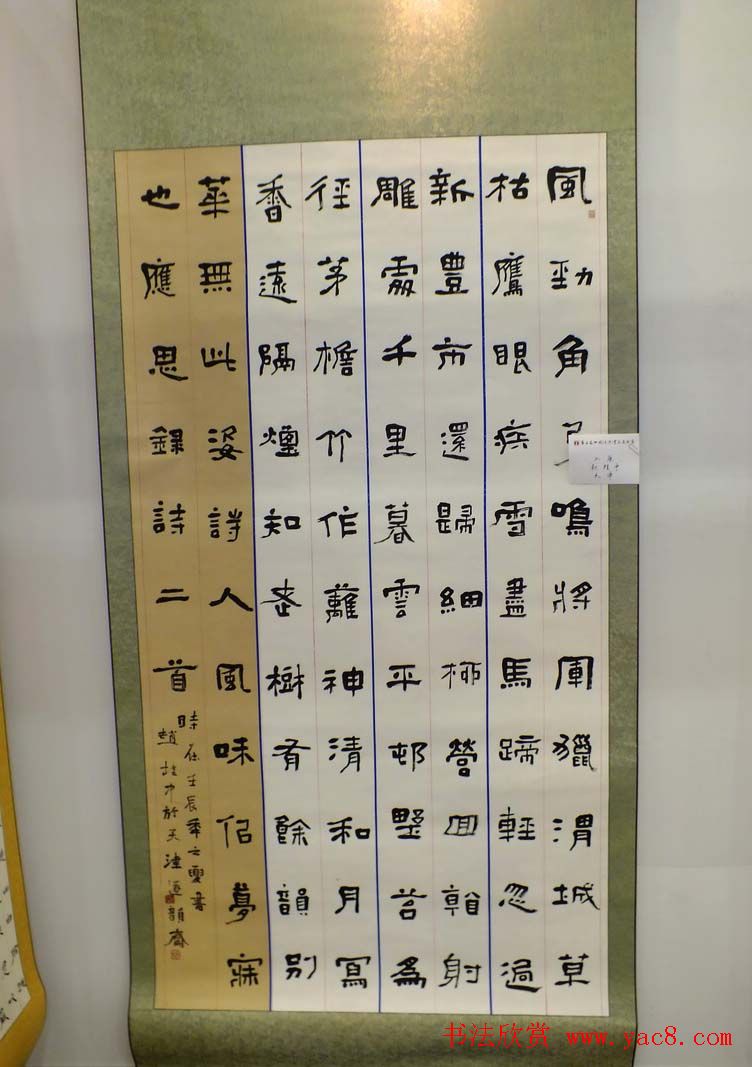 風勁角弓鳴將軍獵渭城草
枯鷹眼疾雪盡馬蹄輕忽過
新豐市還歸細柳營回看射
雕處千里暮雲平邨野苔為
徑茅檐竹作蘺神清和月寫
香遠隔煙知老樹有餘韻別
華無此姿詩人風味似夢寐
也應思錄詩二首
時在壬辰年之夏書
趙中於天津韻齋
书法欣赏 www.yac8.com